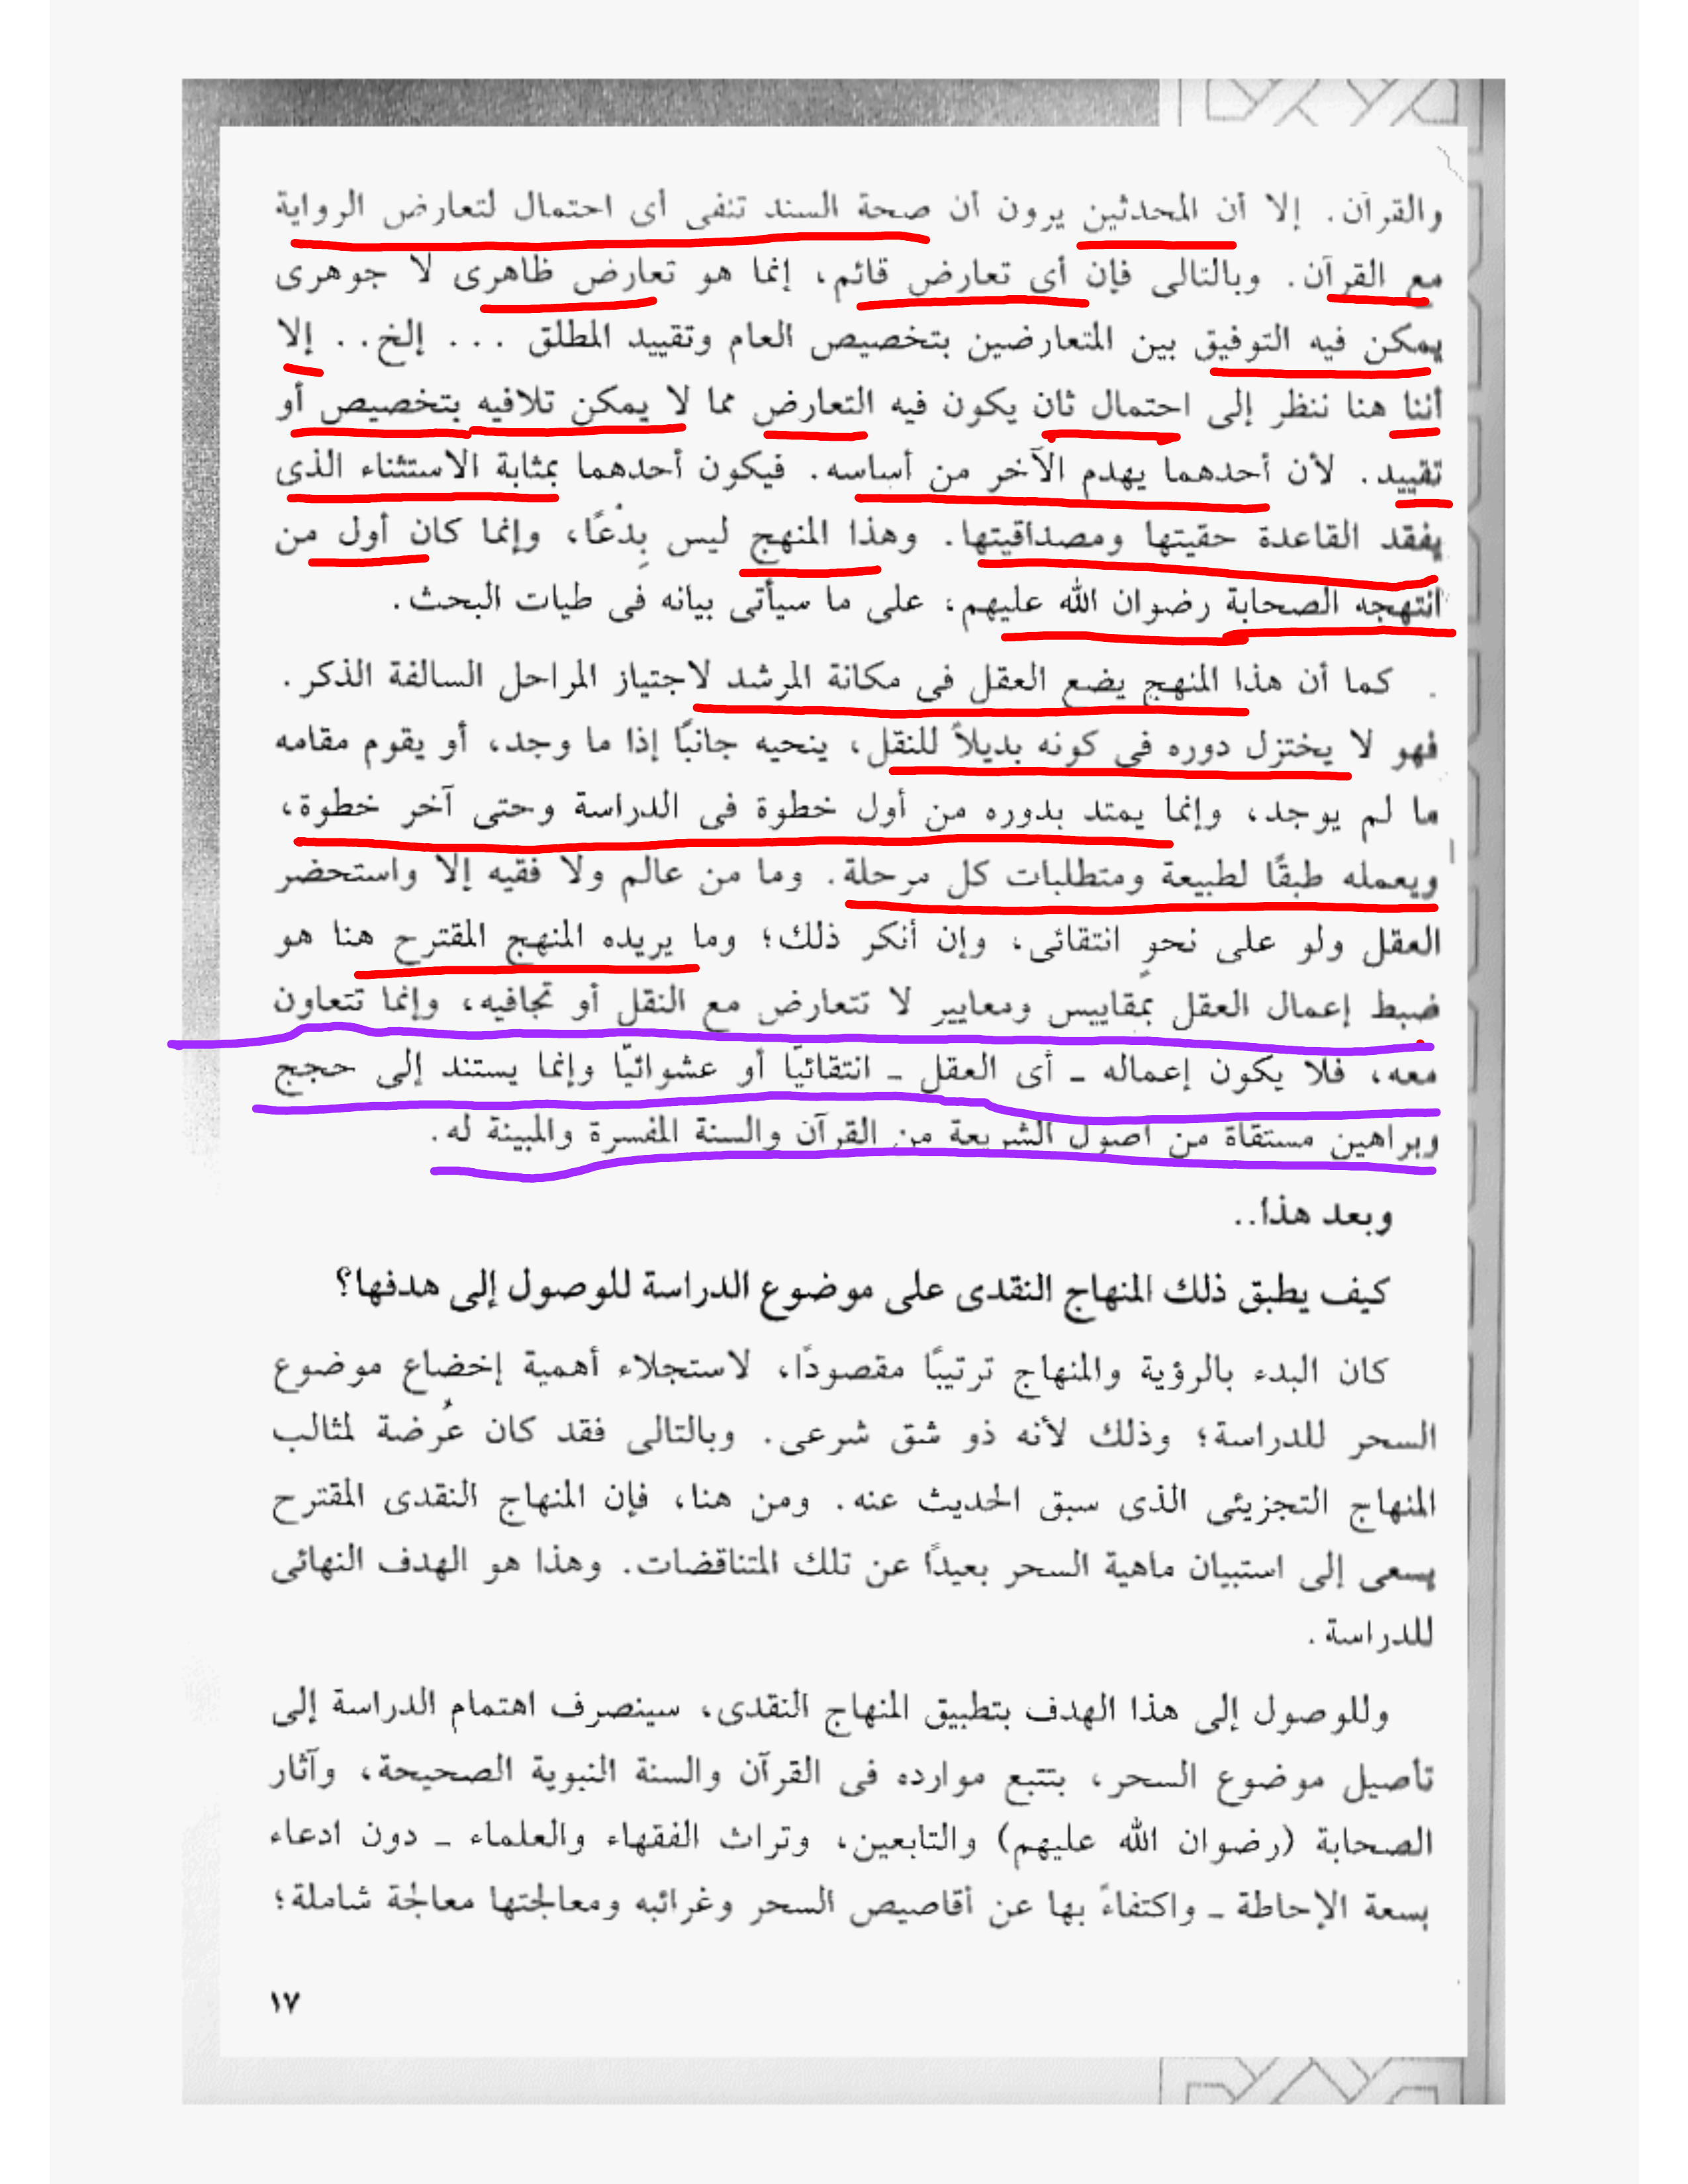 والقرآن. إلا أن المحدثين يرون أن صحة السند تنفى أى احتمال لتعارض الرواية
مع القرآن. وبالتالى فإن أى تعارض قائم، إنما هو تعارض ظاهرى لا جوهرى
يمكن فيه التوفيق بين المتعارضين بتخصيص العام وتقييد المطلق ... إلخ.. إلا
أننا هنا ننظر إلى احتمال ثان يكون فيه التعارض مما لا يمكن تلافيه بتخصيص أو
تقييد. لأن أحدهما يهدم الآخر من أساسه. فيكون أحدهما بمثابة الاستثناء الذى
يفقد القاعدة حقيتها ومصداقيتها. وهذا المنهج ليس بِدْعًا، وإنما كان أول من
انتهجه الصحابة رضوان الله عليهم، على ما سيأتى بيانه فى طيات البحث.
كما أن هذا المنهج يضع العقل فى مكانة المرشد لاجتياز المراحل السالفة الذكر.
فهو لا يختزل دوره فى كونه بديلاً للنقل، ينحيه جانبًا إذا ما وجد، أو يقوم مقامه
ما لم يوجد، وإنما يمتد بدوره من أول خطوة فى الدراسة وحتى آخر خطوة،
ويعمله طبقًا لطبيعة ومتطلبات كل مرحلة. وما من عالم ولا فقيه إلا واستحضر
العقل ولو على نحوٍ انتقائى، وإن أنكر ذلك؛ وما يريده المنهج المقترح هنا هو
ضبط إعمال العقل بمقاييس ومعايير لا تتعارض مع النقل أو تجافيه، وإنما تتعاون
معه، فلا يكون إعماله ـ أى العقل ـ انتقائيًا أو عشوائيًا وإنما يستند إلى حجج
وبراهين مستقاة من أصول الشريعة من القرآن والسنة المفسرة والمبينة له.
وبعد هذا..
كيف يطبق ذلك المنهاج النقدى على موضوع الدراسة للوصول إلى هدفها؟
كان البدء بالرؤية والمنهاج ترتيبًا مقصودًا، لاستجلاء أهمية إخضاع موضوع
السحر للدراسة؛ وذلك لأنه ذو شق شرعى. وبالتالى فقد كان عُرضة لمثالب
المنهاج التجزيئى الذى سبق الحديث عنه. ومن هنا، فإن المنهاج النقدى المقترح
يسعى إلى استبيان ماهية السحر بعيدًا عن تلك المتناقضات. وهذا هو الهدف النهائى
للدراسة.
وللوصول إلى هذا الهدف بتطبيق المنهاج النقدى، سينصرف اهتمام الدراسة إلى
تأصيل موضوع السحر، بتتبع موارده فى القرآن والسنة النبوية الصحيحة، وآثار
الصحابة (رضوان الله عليهم) والتابعين، وتراث الفقهاء والعلماء ـ دون ادعاء
بسعة الإحاطة ـ واكتفاءً بها عن أقاصيص السحر وغرائبه ومعالجتها معالجة شاملة؛
١٧